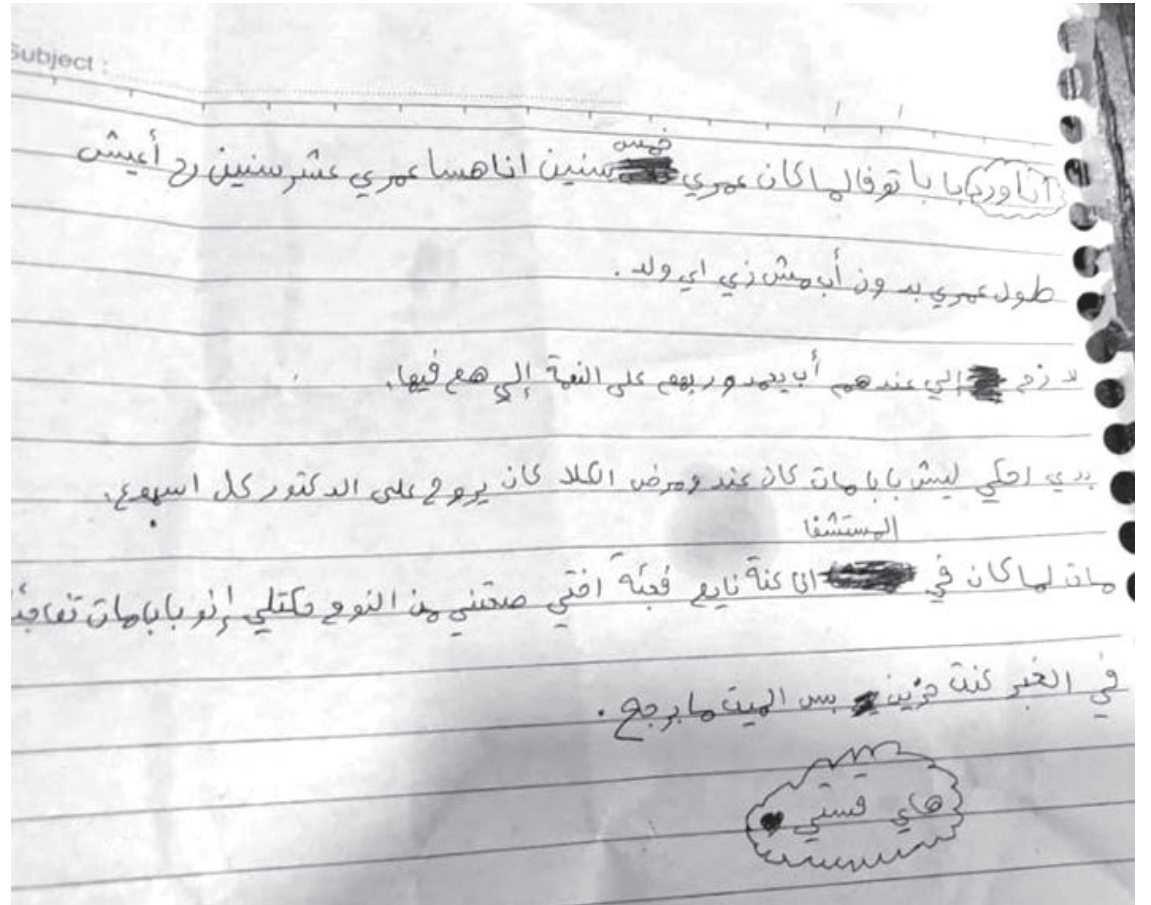 Subject :
أنا ورد بابا توفا لما كان عمري خمس سنين انا هسا عمري عشر سنين رح أعيش
طول عمري بدون أب مش زي اي ولد .
لازم الي عندهم أب يحمدو ربهم على النعمة إلي هم فيها.
بدي احكي ليش بابا مات كان عندو مرض الكلا كان يروح على الدكتور كل اسبوع.
مات لما كان في المستشفا انا كنة نايم فجئة اختي صحتني من النوم حكتلي إنو بابا مات تفاجئة
في الخبر كنت حزين بس الميت ما برجع .
هاي قستي